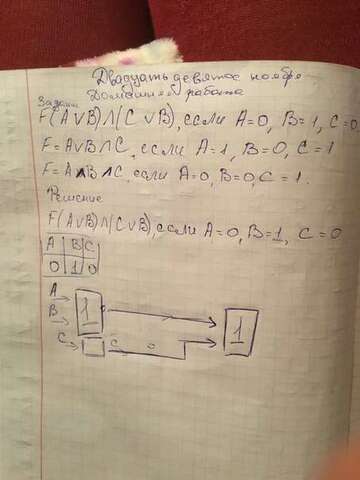 Двадцать девятое ноября
Домашняя работа
Задани
F(A∨B)∧(C∨B), если A=0, B=1, C=0
F=A∨B∧C, если A=1, B=0, C=1
F=A∧B∧C, если A=0, B=0, C=1.
Решение
F(A∨B)∧(C∨B), если A=0, B=1, C=0
A B C
0 1 0
A
B 1 1
C C 0